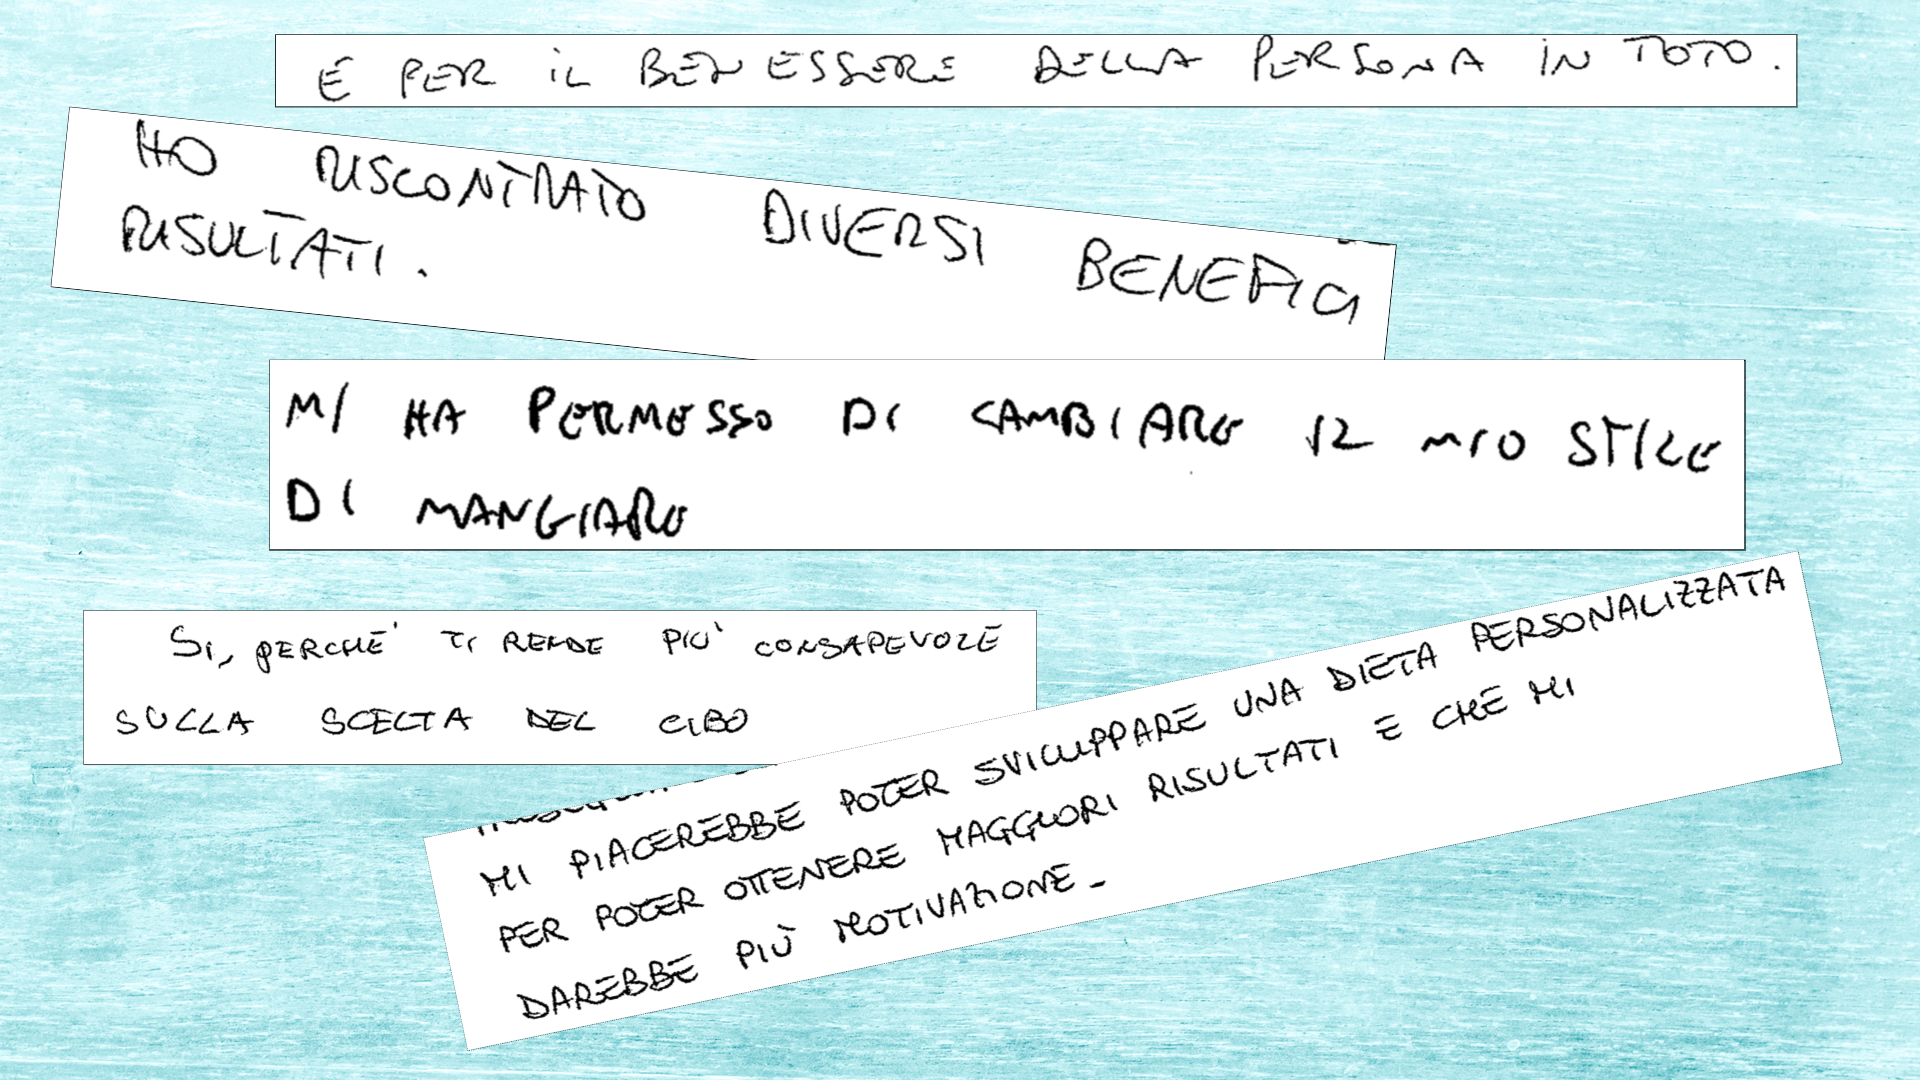 E PER IL BENESSERE DELLA PERSONA IN TOTO.
HO RISCONTRATO DIVERSI BENEFICI
RISULTATI.
MI HA PERMESSO DI CAMBIARE IL MIO STILE
DI MANGIARE
SI, PERCHE' TI RENDE PIU' CONSAPEVOLE
SULLA SCELTA DEL CIBO
MI PIACEREBBE POTER SVILUPPARE UNA DIETA PERSONALIZZATA
PER POTER OTTENERE MAGGIORI RISULTATI E CHE MI
DAREBBE PIÙ MOTIVAZIONE_